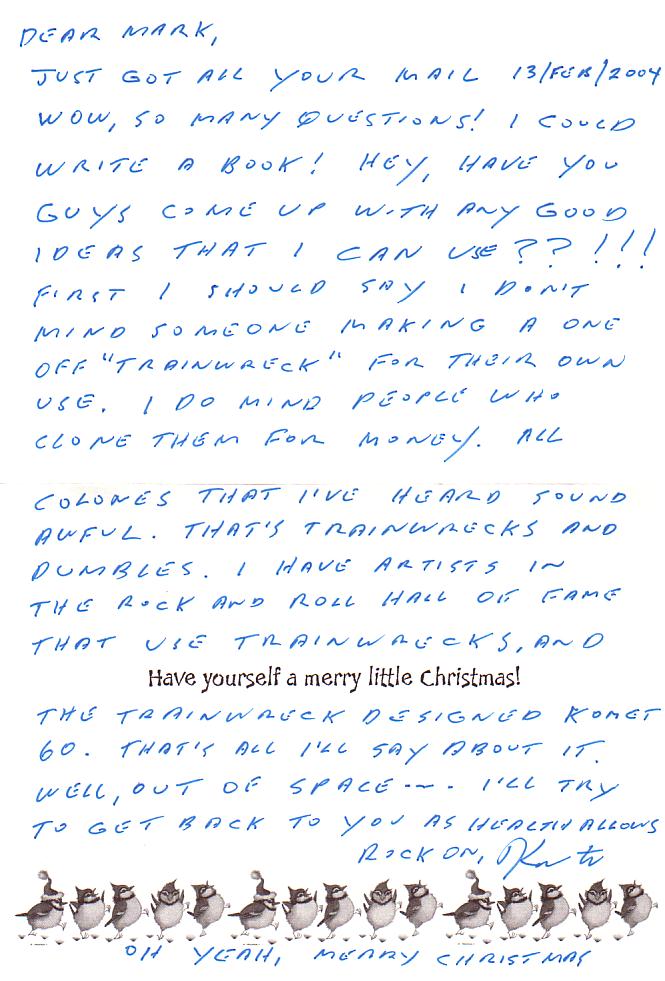 DEAR MARK,
JUST GOT ALL YOUR MAIL 13/FEB/2004
WOW, SO MANY QUESTIONS! I COULD
WRITE A BOOK! HEY, HAVE YOU
GUYS COME UP WITH ANY GOOD
IDEAS THAT I CAN USE??!!!
FIRST I SHOULD SAY I DON'T
MIND SOMEONE MAKING A ONE
OFF "TRAINWRECK" FOR THEIR OWN
USE. I DO MIND PEOPLE WHO
CLONE THEM FOR MONEY. ALL
COLONES THAT I'VE HEARD SOUND
AWFUL. THAT'S TRAINWRECKS AND
DUMBLES. I HAVE ARTISTS IN
THE ROCK AND ROLL HALL OF FAME
THAT USE TRAINWRECKS, AND
Have yourself a merry little Christmas!
THE TRAINWRECK DESIGNED KOMET
60. THAT'S ALL I'LL SAY ABOUT IT.
WELL, OUT OF SPACE --- . I'LL TRY
TO GET BACK TO YOU AS HEALTH ALLOWS
ROCK ON,
OH YEAH, MERRY CHRISTMAS